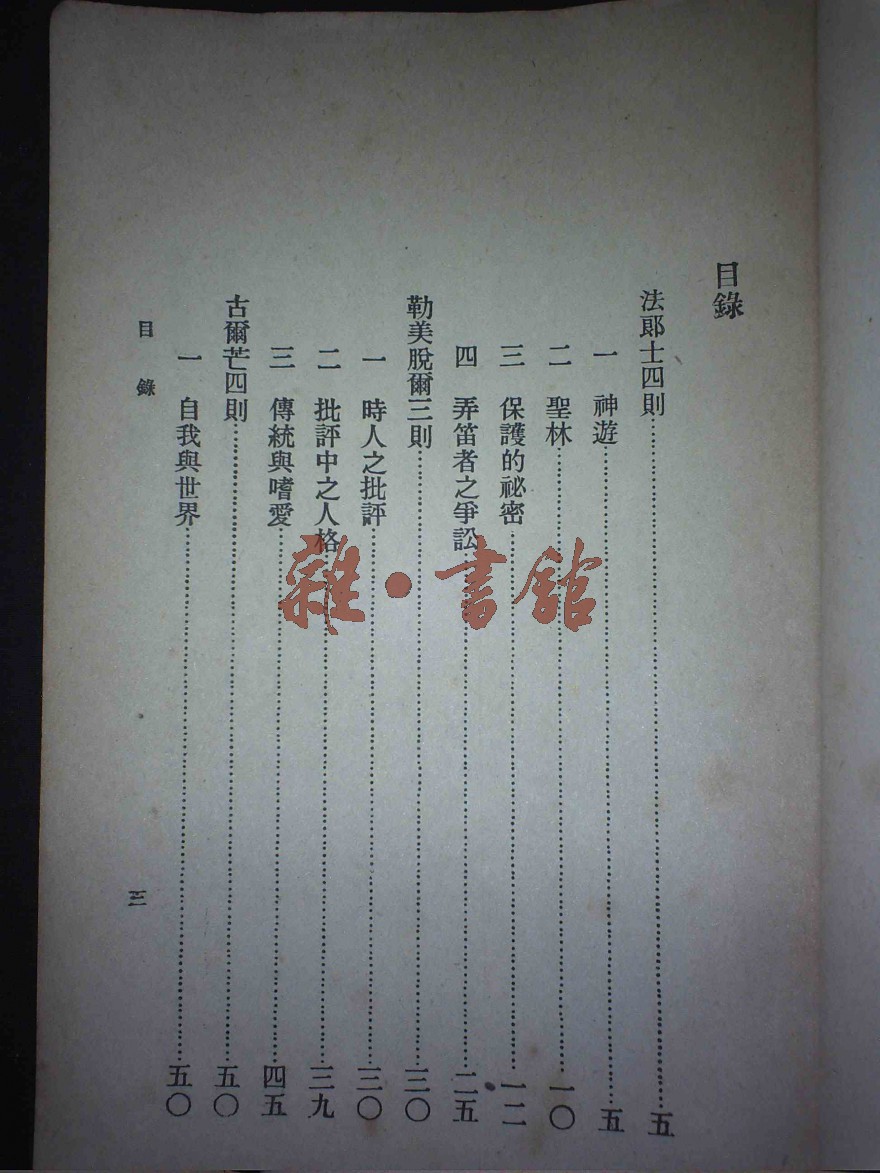 目錄
法郎士四則…………五
一 神遊…………五
二 聖林…………一〇
三 保護的祕密…………一二
四 弄笛者之爭訟…………二五
勒美脫爾三則…………三〇
一 時人之批評…………三〇
二 批評中之人格…………三九
三 傳統與嗜愛…………四五
古爾芒四則…………五〇
一 自我與世界…………五〇
目錄 三
雜·書館